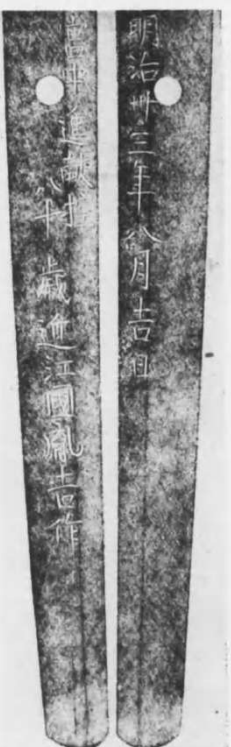 明治卅三年八月吉日
中進献
八十歳近江國胤吉作